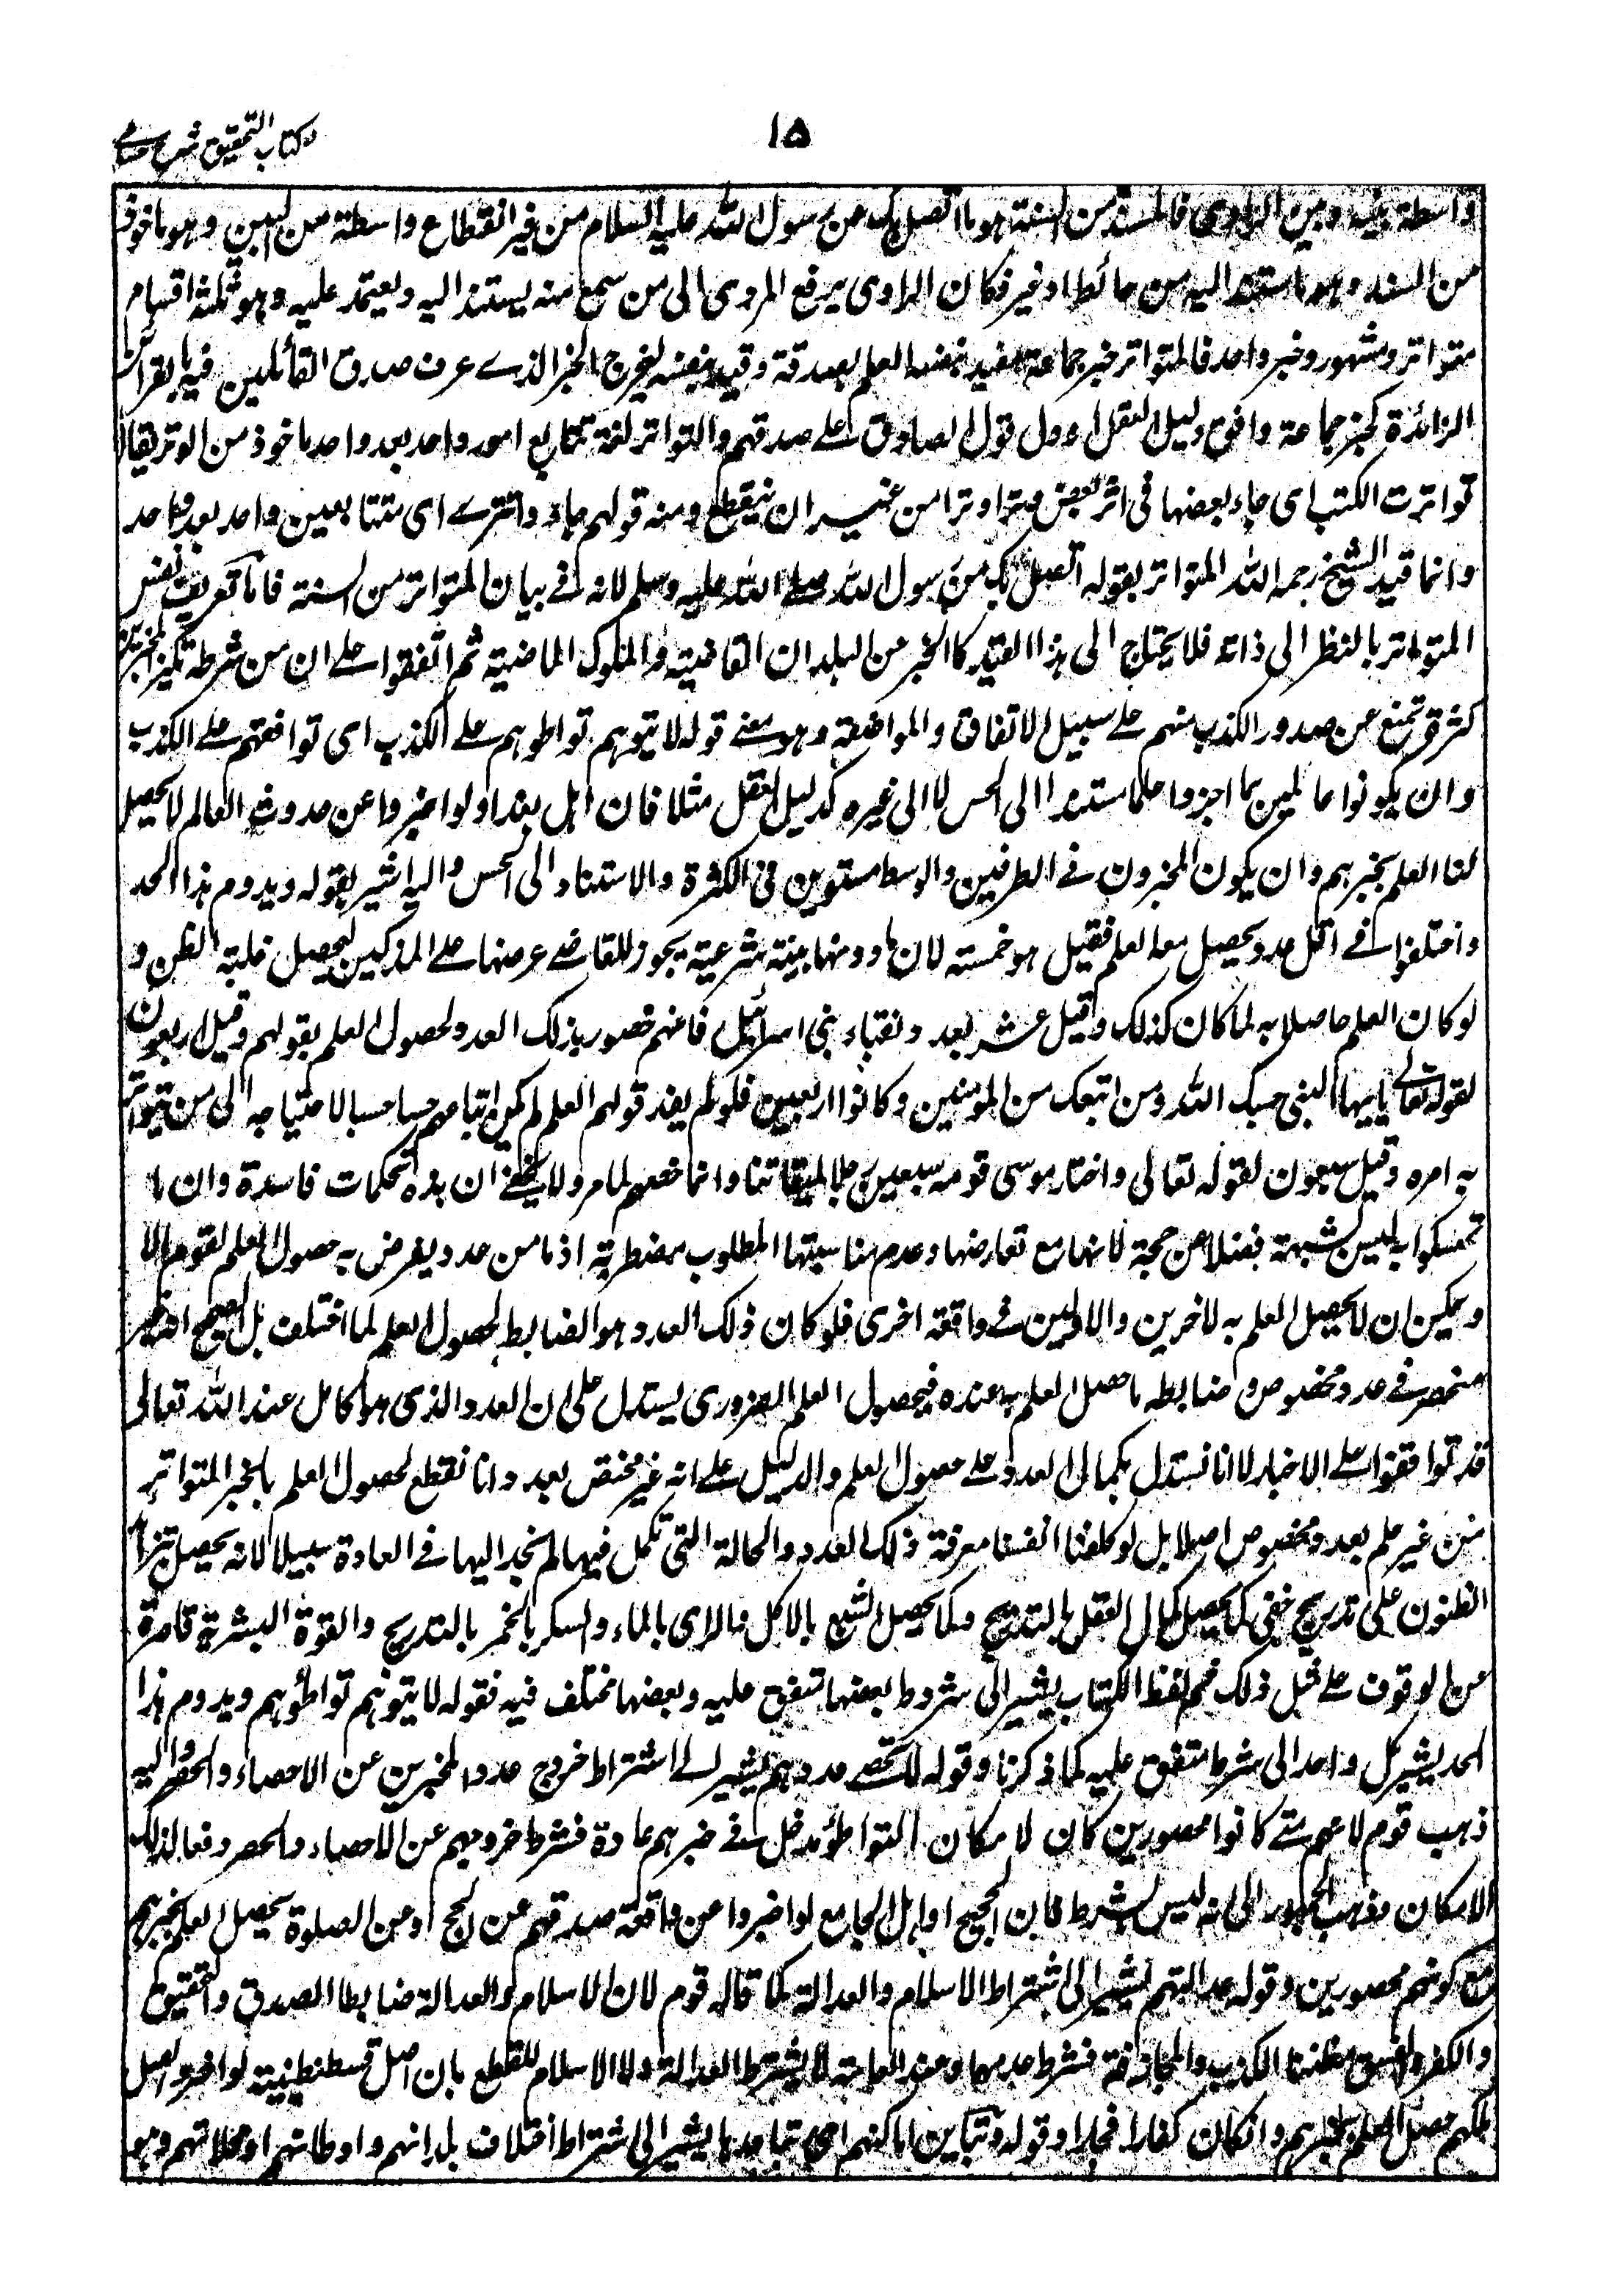 كتاب التحقيق شرح حسامى
١٥
واسطة بينه وبين الراوى فالمسند من السنة هو ما اتصل بك من رسول الله عليه السلام من غير انقطاع واسطة من البين وهو ماخوذ
من السند وهو ما استند اليه من حائط او غيره فكان الراوى يرفع المروى الى من سمع منه يستند اليه ويعتمد عليه وهو ثلثة اقسام
متواتر ومشهور وخبر واحد فالمتواتر خبر جماعة مفيد بنفسه العلم بصدقه وقيد بنفسه ليخرج الخبر الذے عرف صدق القائلين فيه بالقرائن
الزائدة كخبر جماعة وافق دليل العقل او دل قول الصادق على صدقهم والتواتر لغة تتابع امور واحد بعد واحد ماخوذ من الوتر يقال
تواترت الكتب اى جاء بعضها فى اثر بعض وترا وترا من غير ان ينقطع ومنه قولهم جاءوا تترے اى متتابعين واحد بعد واحد
وانما قيد الشيخ رحمه الله المتواتر بقوله اتصل بك من رسول الله صلے الله عليه وسلم لانه فے بيان المتواتر من السنة فاما تعريف نفس
المتواتر بالنظر الى ذاته فلا يحتاج الى هذا القيد كالخبر عن البلدان القاصية والملوك الماضية ثم اتفقوا على ان من شرطه تكثر المخبرين
كثرة تمنع عن صدور الكذب منهم علے سبيل الاتفاق والمواضعة وهو معنے قوله لا يتوهم تواطؤهم علے الكذب اى توافقهم علے الكذب
وان يكونوا عالمين بما اخبروا علما مستندا الى الحس لا الى غيره كدليل العقل مثلا فان اهل بغداد لو اخبروا عن حدوث العالم لا يحصل
لنا العلم بخبرهم وان يكون المخبرون فے الطرفين والوسط مستوين فى الكثرة والاستناد الى الحس واليه اشير بقوله ويدوم هذا الحد
واختلفوا فے اقل عدد يحصل معه العلم فقيل هو خمسة لان ما دونها بينة شرعية يجوز للقاضے عرضها على المزكين ليحصل غلبة الظن و
لو كان العلم حاصلا به لما كان كذلك وقيل اثنا عشر بعدد نقباء بنى اسرائيل فانهم خصوا بذلك العدد لحصول العلم بقولهم وقيل اربعون
لقوله تعالے يايها النبى حسبك الله ومن اتبعك من المؤمنين وكانوا اربعين فلو لم يفد قولهم العلم لم يكونوا حسبا لاحتياجه الى من يتواتر
به امره وقيل سبعون لقوله تعالى واختار موسى قومه سبعين رجلا لميقاتنا وانما خصهم لما مر ولا يخفے ان هذه تحكمات فاسدة وان ما
تمسكوا به ليس بشبهة فضلا عن حجة لانها مع تعارضها وعدم مناسبتها المطلوب مضطربة اذ ما من عدد يفرض به حصول العلم لقوم الا
ويمكن ان لا يحصل العلم به لاخرين والاولين فے واقعة اخرى فلو كان ذلك العدد هو الضابط لحصول العلم لما اختلف بل الصحيح انه غير
منحصر فے عدد مخصوص وضابطه ما حصل العلم به عنده فبحصول العلم الضرورى يستدل على ان العدد الذى هو كامل عند الله تعالى
قد توافقوا علے الاخبار لا انا نستدل بكمال العدد علے حصول العلم والدليل علے انه غير مختص بعدد انا نقطع لحصول العلم بالخبر المتواتر
من غير علم بعدد مخصوص اصلا بل لو كلفنا انفسنا معرفة ذلك العدد والحالة التى تكمل فيها لم نجد اليها فے العادة سبيلا لانه يحصل بتزايد
الظنون على تدريج خفى كما يحصل كمال العقل بالتدريج وكما يحصل الشبع بالاكل والرى بالماء والسكر بالخمر بالتدريج والقوة البشرية قاصرة
عن الوقوف علے مثل ذلك ثم لفظ الكتاب يشير الى شروط بعضها متفق عليه وبعضها مختلف فيه فقوله لا يتوهم تواطؤهم ويدوم هذا
الحد يشير كل واحد الى شرط متفق عليه كما ذكرنا وقوله لا يحصے عددهم يشير الے اشتراط خروج عدد المخبرين عن الاحصاء والحصر واليه
ذهب قوم لانهم متے كانوا محصورين كان لامكان التواطؤ مدخل فے خبرهم عادة فشرط خروجهم عن الاحصاء والحصر دفعا لذلك
الامكان وذهب الجمهور الى انه ليس بشرط فان الحجيج او اهل الجامع لو اخبروا عن واقعة صدتهم عن الحج او من الصلوة يحصل العلم بخبرهم
مع كونهم محصورين وقوله عدالتهم يشير الى اشتراط الاسلام والعدالة كما قاله قوم لان الاسلام والعدالة ضابطا الصدق والتحقيق
والكفر والفسق مظنتا الكذب والمجازفة فشرط عدمهما وعند العامة لا يشترط العدالة ولا الاسلام للقطع بان اهل قسطنطينية لو اخبروا بقتل
ملكهم حصل العلم بخبرهم وان كان كفارا فجارا وقوله وتباين اماكنهم اى تباعدها يشير الى اشتراط اختلاف بلدانهم واوطانهم او محلاتهم وهو